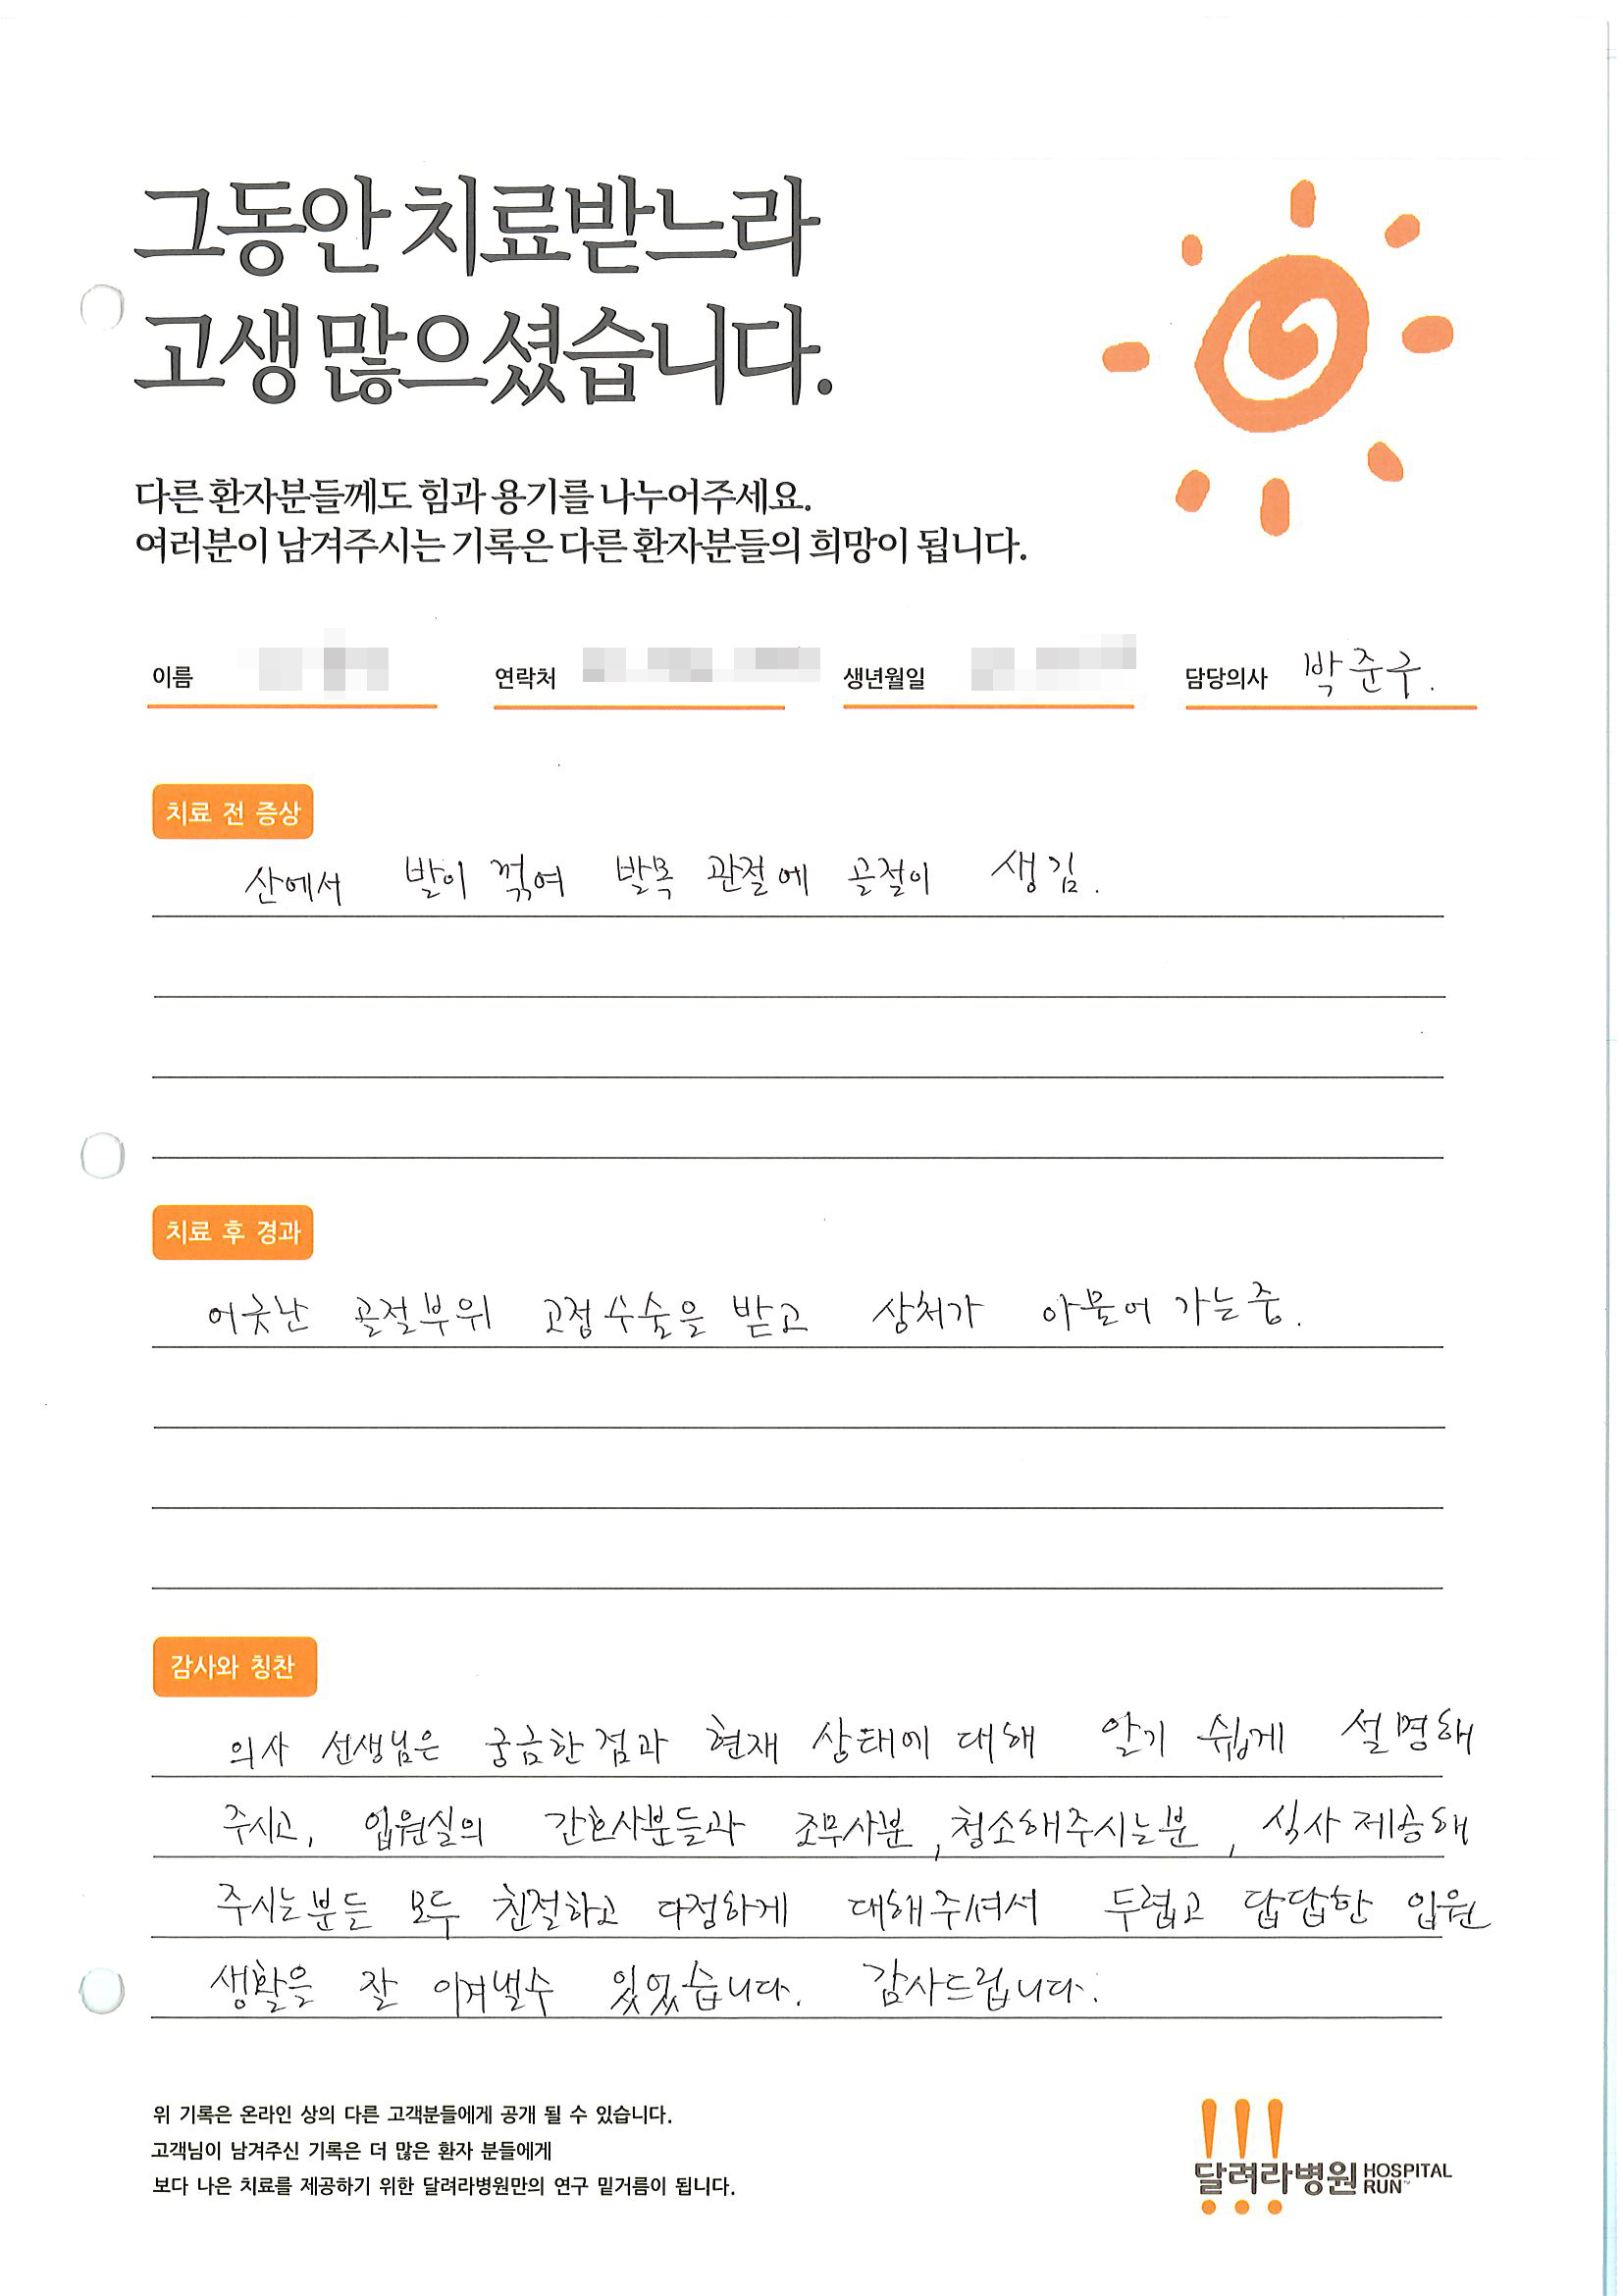 그동안 치료받느라
고생 많으셨습니다.
다른 환자분들께도 힘과 용기를 나누어주세요.
여러분이 남겨주시는 기록은 다른 환자분들의 희망이 됩니다.
이름 연락처 생년월일 담당의사 박준구.
치료 전 증상
산에서 발이 꺾여 발목 관절에 골절이 생김.
치료 후 경과
어긋난 골절부위 고정수술을 받고 상처가 아물어 가는중.
감사와 칭찬
의사 선생님은 궁금한점과 현재 상태에 대해 알기 쉽게 설명해
주시고, 입원실의 간호사분들과 조무사분, 청소해주시는분, 식사 제공해
주시는분들 모두 친절하고 다정하게 대해주셔서 두렵고 답답한 입원
생활을 잘 이겨낼수 있었습니다. 감사드립니다.
위 기록은 온라인 상의 다른 고객분들에게 공개 될 수 있습니다.
고객님이 남겨주신 기록은 더 많은 환자 분들에게
보다 나은 치료를 제공하기 위한 달려라병원만의 연구 밑거름이 됩니다.
달려라병원 HOSPITAL RUN™